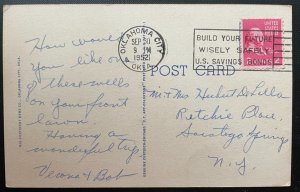 OKLAHOMA CITY
SEP 30
9 PM
1952
OKLA.
BUILD YOUR FUTURE
WISELY SAFELY
U.S. SAVINGS BONDS
UNITED STATES
POST CARD
How would
you like one
of these wells
on your front
lawn.
Having a
wonderful trip
Verona & Bob
Mr & Mrs Herbert
Ritchie Place,
Saratoga Springs
N.Y.